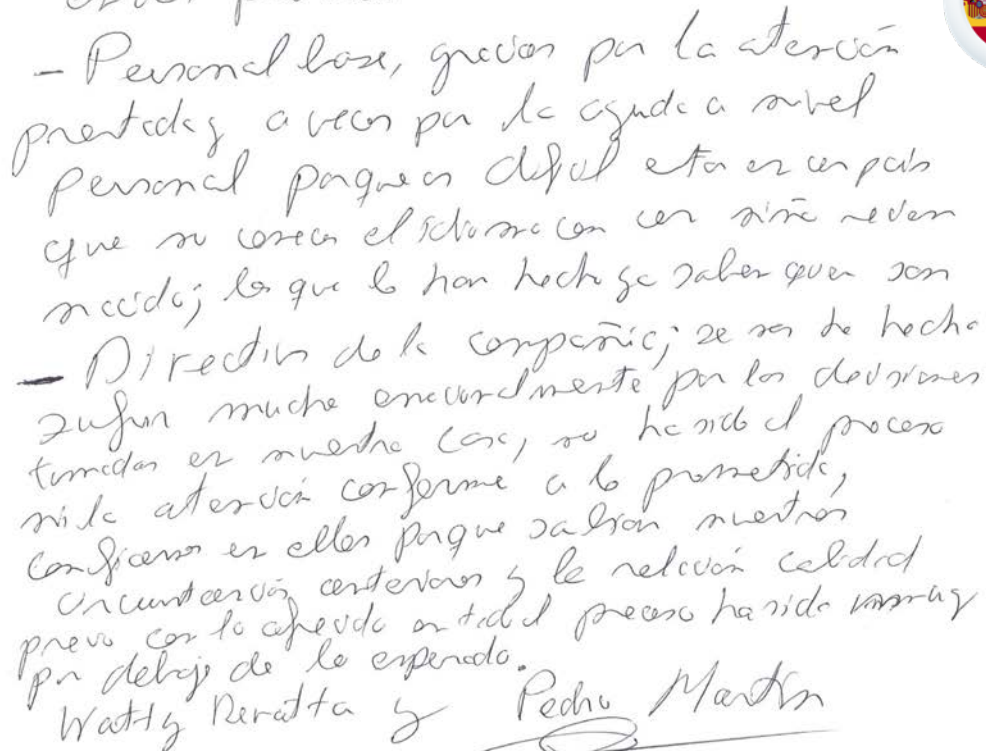 - Personal base, gracias por la atención
prestada y a veces por la ayuda a nivel
personal porque es difícil estar en un país
que no conoces el idioma con un niño recien
nacido; los que lo han hecho ya saben quien son
- Directiva de la compañía; se nos ha hecho
sufrir mucho emocionalmente por las decisiones
tomadas en nuestro caso, no ha sido el proceso
ni la atención conforme a lo prometido,
confiamos en ellos porque sabían nuestras
circunstancias anteriores y la relación calidad
precio con lo ofrecido en todo el proceso ha sido muy
por debajo de lo esperado.
y Pedro Martín